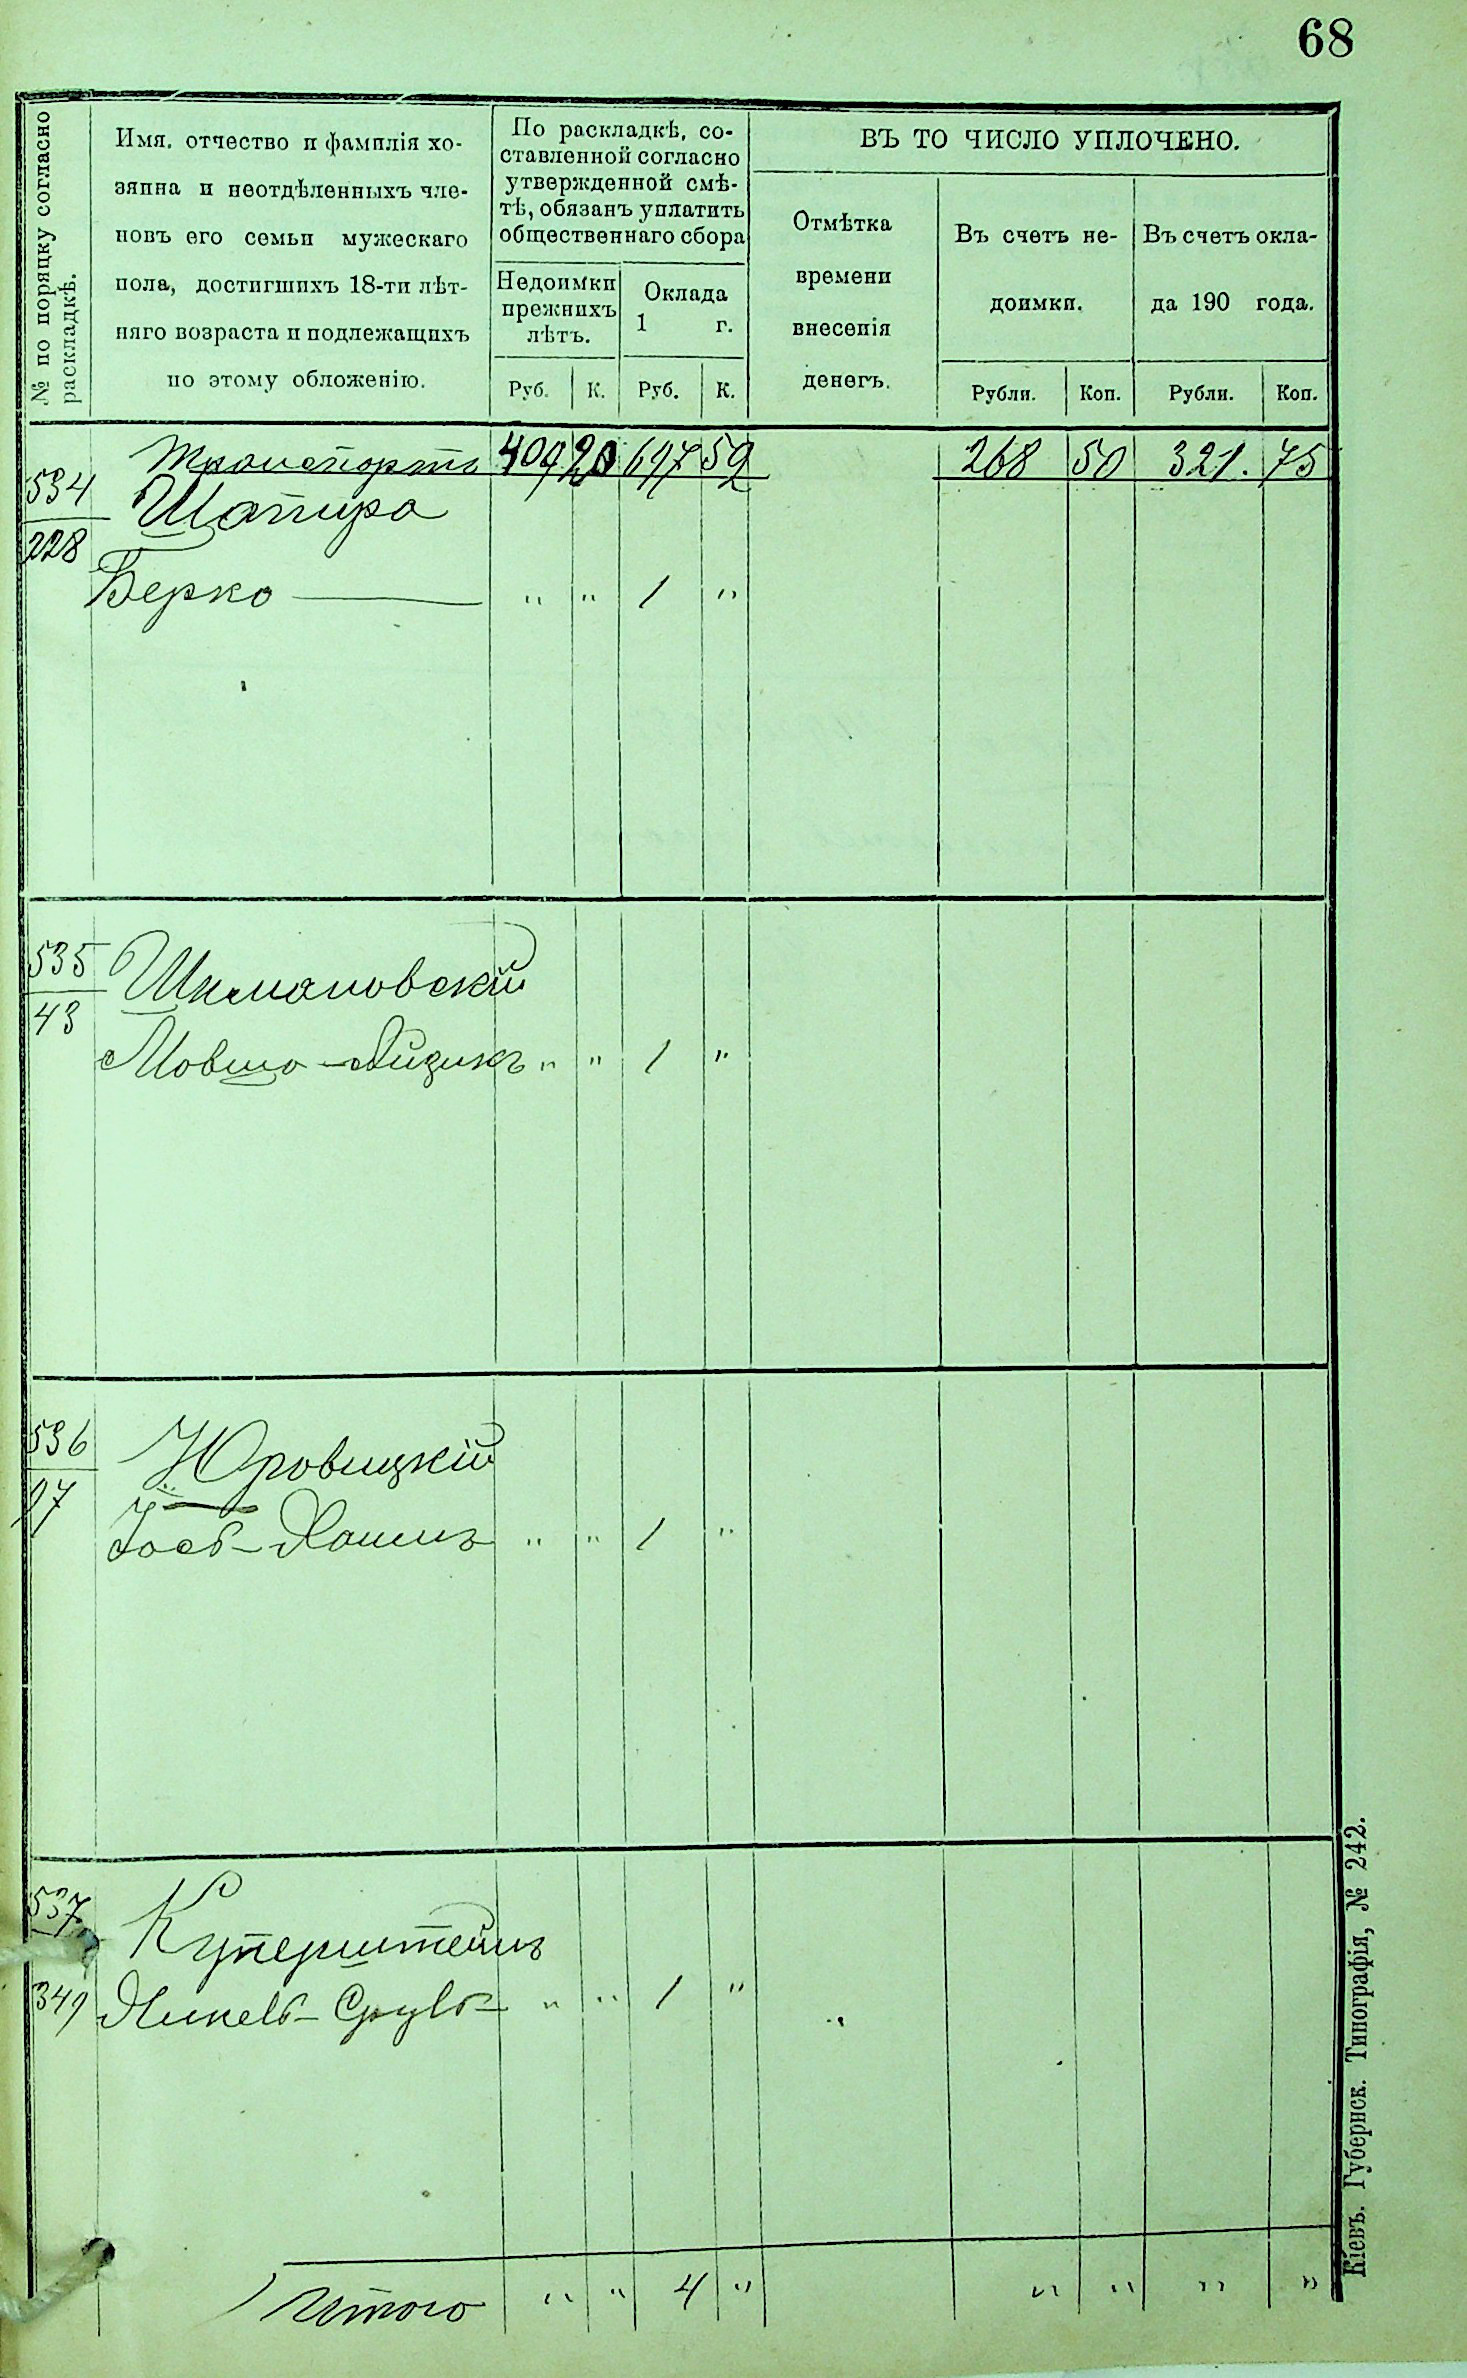 68
№ по поряцку согласно
раскладкѣ.
Имя, отчество и фамилія хо-
зяина и неотдѣленныхъ чле-
новъ его семьи мужескаго
пола, достигшихъ 18-ти лѣт-
няго возраста и подлежащихъ
по этому обложенію.
По раскладкѣ, со-
ставленной согласно
утвержденной смѣ-
тѣ, обязанъ уплатить
общественнаго сбора
Недоимки
прежнихъ
лѣтъ.
Оклада
1 г.
Руб. К. Руб. К.
ВЪ ТО ЧИСЛО УПЛОЧЕНО.
Отмѣтка
времени
внесенія
денегъ.
Въ счетъ не-
доимки.
Въ счетъ окла-
да 190 года.
Рубли. Коп. Рубли. Коп.
Транспортъ 409 20 697 59 268 50 321. 75
534
228
Шапира
Берко — " " 1 "
535
43
Шимановскій
Мовшо-Айзикъ " " 1 "
536
97
Юровицкій
Іось-Хаимъ " " 1 "
537
349
Куперштейнъ
Хикель-Сруль " " 1 "
Итого " " 4 " " " " "
Кіевъ. Губернск. Типографія, № 242.